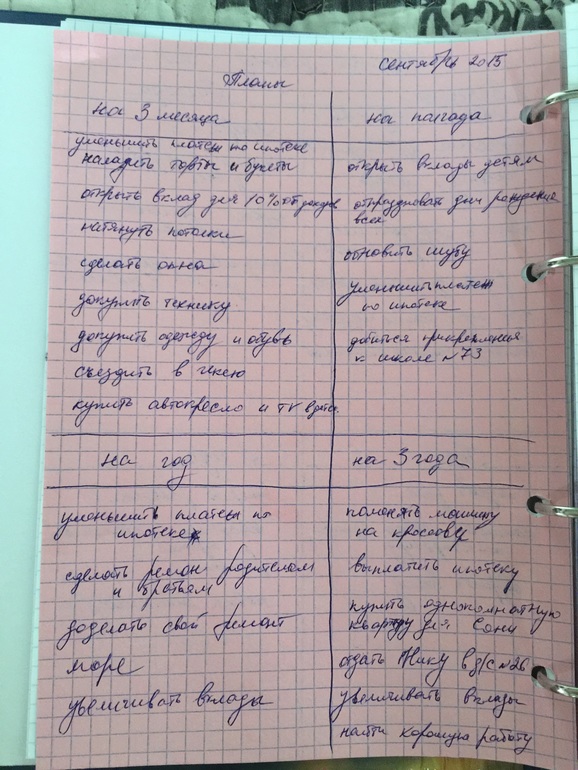 сентябрь 2015
Планы
на 3 месяца
уменьшить платежи по ипотеке
наладить торты и букеты
открыть вклад для 10% от доходов
натянуть потолки
сделать окна
докупить технику
докупить одежду и обувь
съездить в Икею
купить автокресло и
на полгода
открыть вклады детям
отпраздновать дни рождения
всех
обновить шубу
уменьшить платеж
по ипотеке
добиться прикрепления
к школе №73
на год
уменьшить платежи по
ипотеке
сделать ремон родителям
и братьям
доделать свой ремонт
море
увеличивать вклады
на 3 года
поменять машину
на кроссовер
выплатить ипотеку
купить однокомнатную
квартиру для Сани
отдать Нику в д/с №26
увеличивать вклады
найти хорошую работу